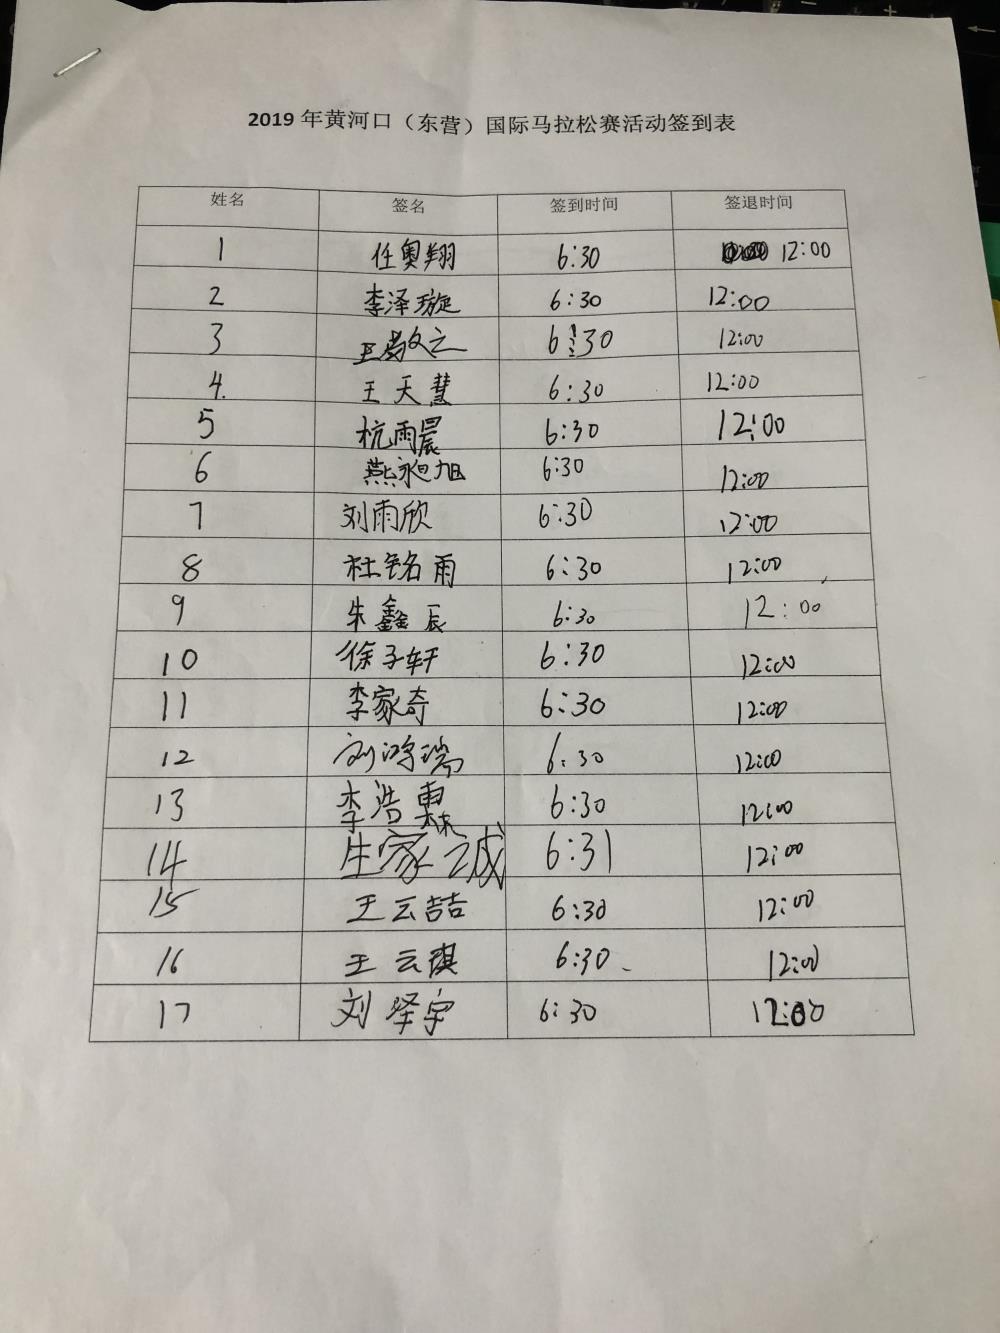 2019年黄河口（东营）国际马拉松赛活动签到表
姓名 签名 签到时间 签退时间
1 任奥翔 6:30 12:00
2 李泽璇 6:30 12:00
3 王敬之 6:30 12:00
4. 王天慧 6:30 12:00
5 杭雨晨 6:30 12:00
6 燕昶旭 6:30 12:00
7 刘雨欣 6:30 12:00
8 杜铭雨 6:30 12:00
9 朱鑫辰 6:30 12:00
10 徐子轩 6:30 12:00
11 李家奇 6:30 12:00
12 刘鸿瑞 6:30 12:00
13 李浩 6:30 12:00
14 生家诚 6:31 12:00
15 王云喆 6:30 12:00
16 王云琪 6:30 12:00
17 刘泽宇 6:30 12:00